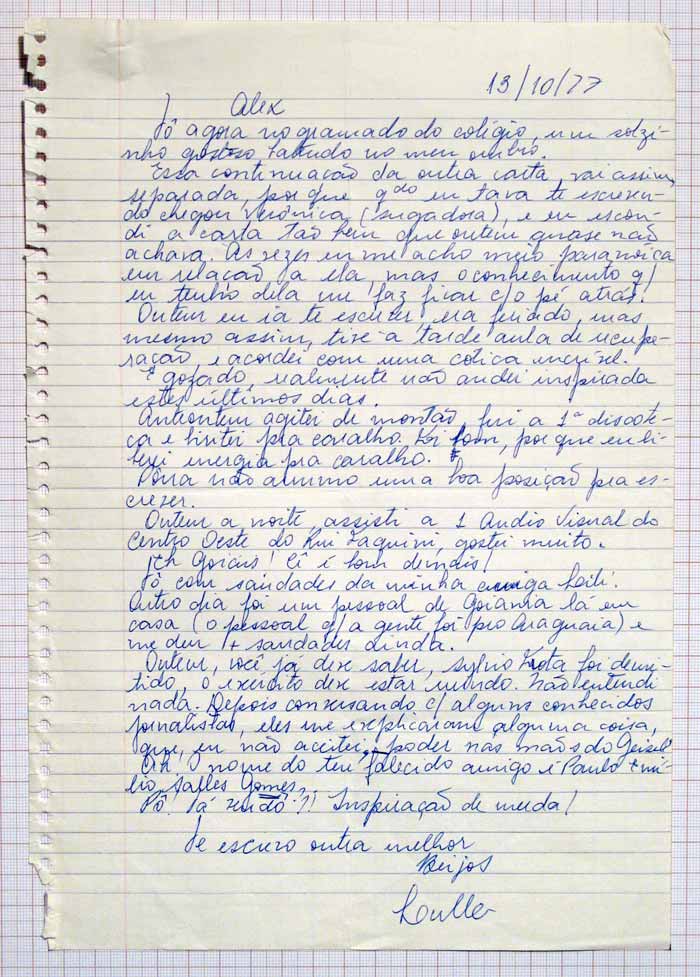 13/10/77
Alex
Tô agora no gramado do colégio, um solzi-
nho gostoso batendo no meu ombro.
Essa continuação da outra carta, vai assim,
separada, por que qdo eu tava te escreven-
do chegou Verônica (sugadora), e eu escon-
di a carta tão bem que ontem quase não
achava. As vezes eu me acho meio paranoica
em relação a ela, mas o conhecimento q/
eu tenho dela me faz ficar c/o pé atrás.
Ontem eu ia te escrever, era feriado, mas
mesmo assim, tive a tarde aula de recupe-
ração, e acordei com uma cólica incrível.
É gozado, realmente não andei inspirada
estes últimos dias.
Anteontem agitei de montão, fui a 1ª discote-
ca e curti pra caralho. Foi bom, por que eu li-
berei energia pra caralho.
Porra não arrumo uma boa posição pra es-
crever.
Ontem a noite, assisti a 1 Audio Visual do
Centro Oeste do Rui, gostei muito.
Eh Goiás! Cê é bom demais!
Tô com saudades da minha amiga
Outro dia foi um pessoal de Goiania lá em
casa (o pessoal q/a gente foi pro Araguaia) e
me deu + saudades ainda.
Ontem, você já deve saber, Sylvio Frota foi demi-
tido, o exército deve estar mudo. Não entendi
nada. Depois conversando c/ alguns conhecidos
jornalistas, eles me explicaram alguma coisa,
que, eu não aceitei, poder nas mãos do Geisel.
Ah o nome do teu falecido amigo é Paulo Emí-
lio Salles Gomes.
Pô! Tá vendo?! Inspiração de merda!
Te escrevo outra melhor
Beijos